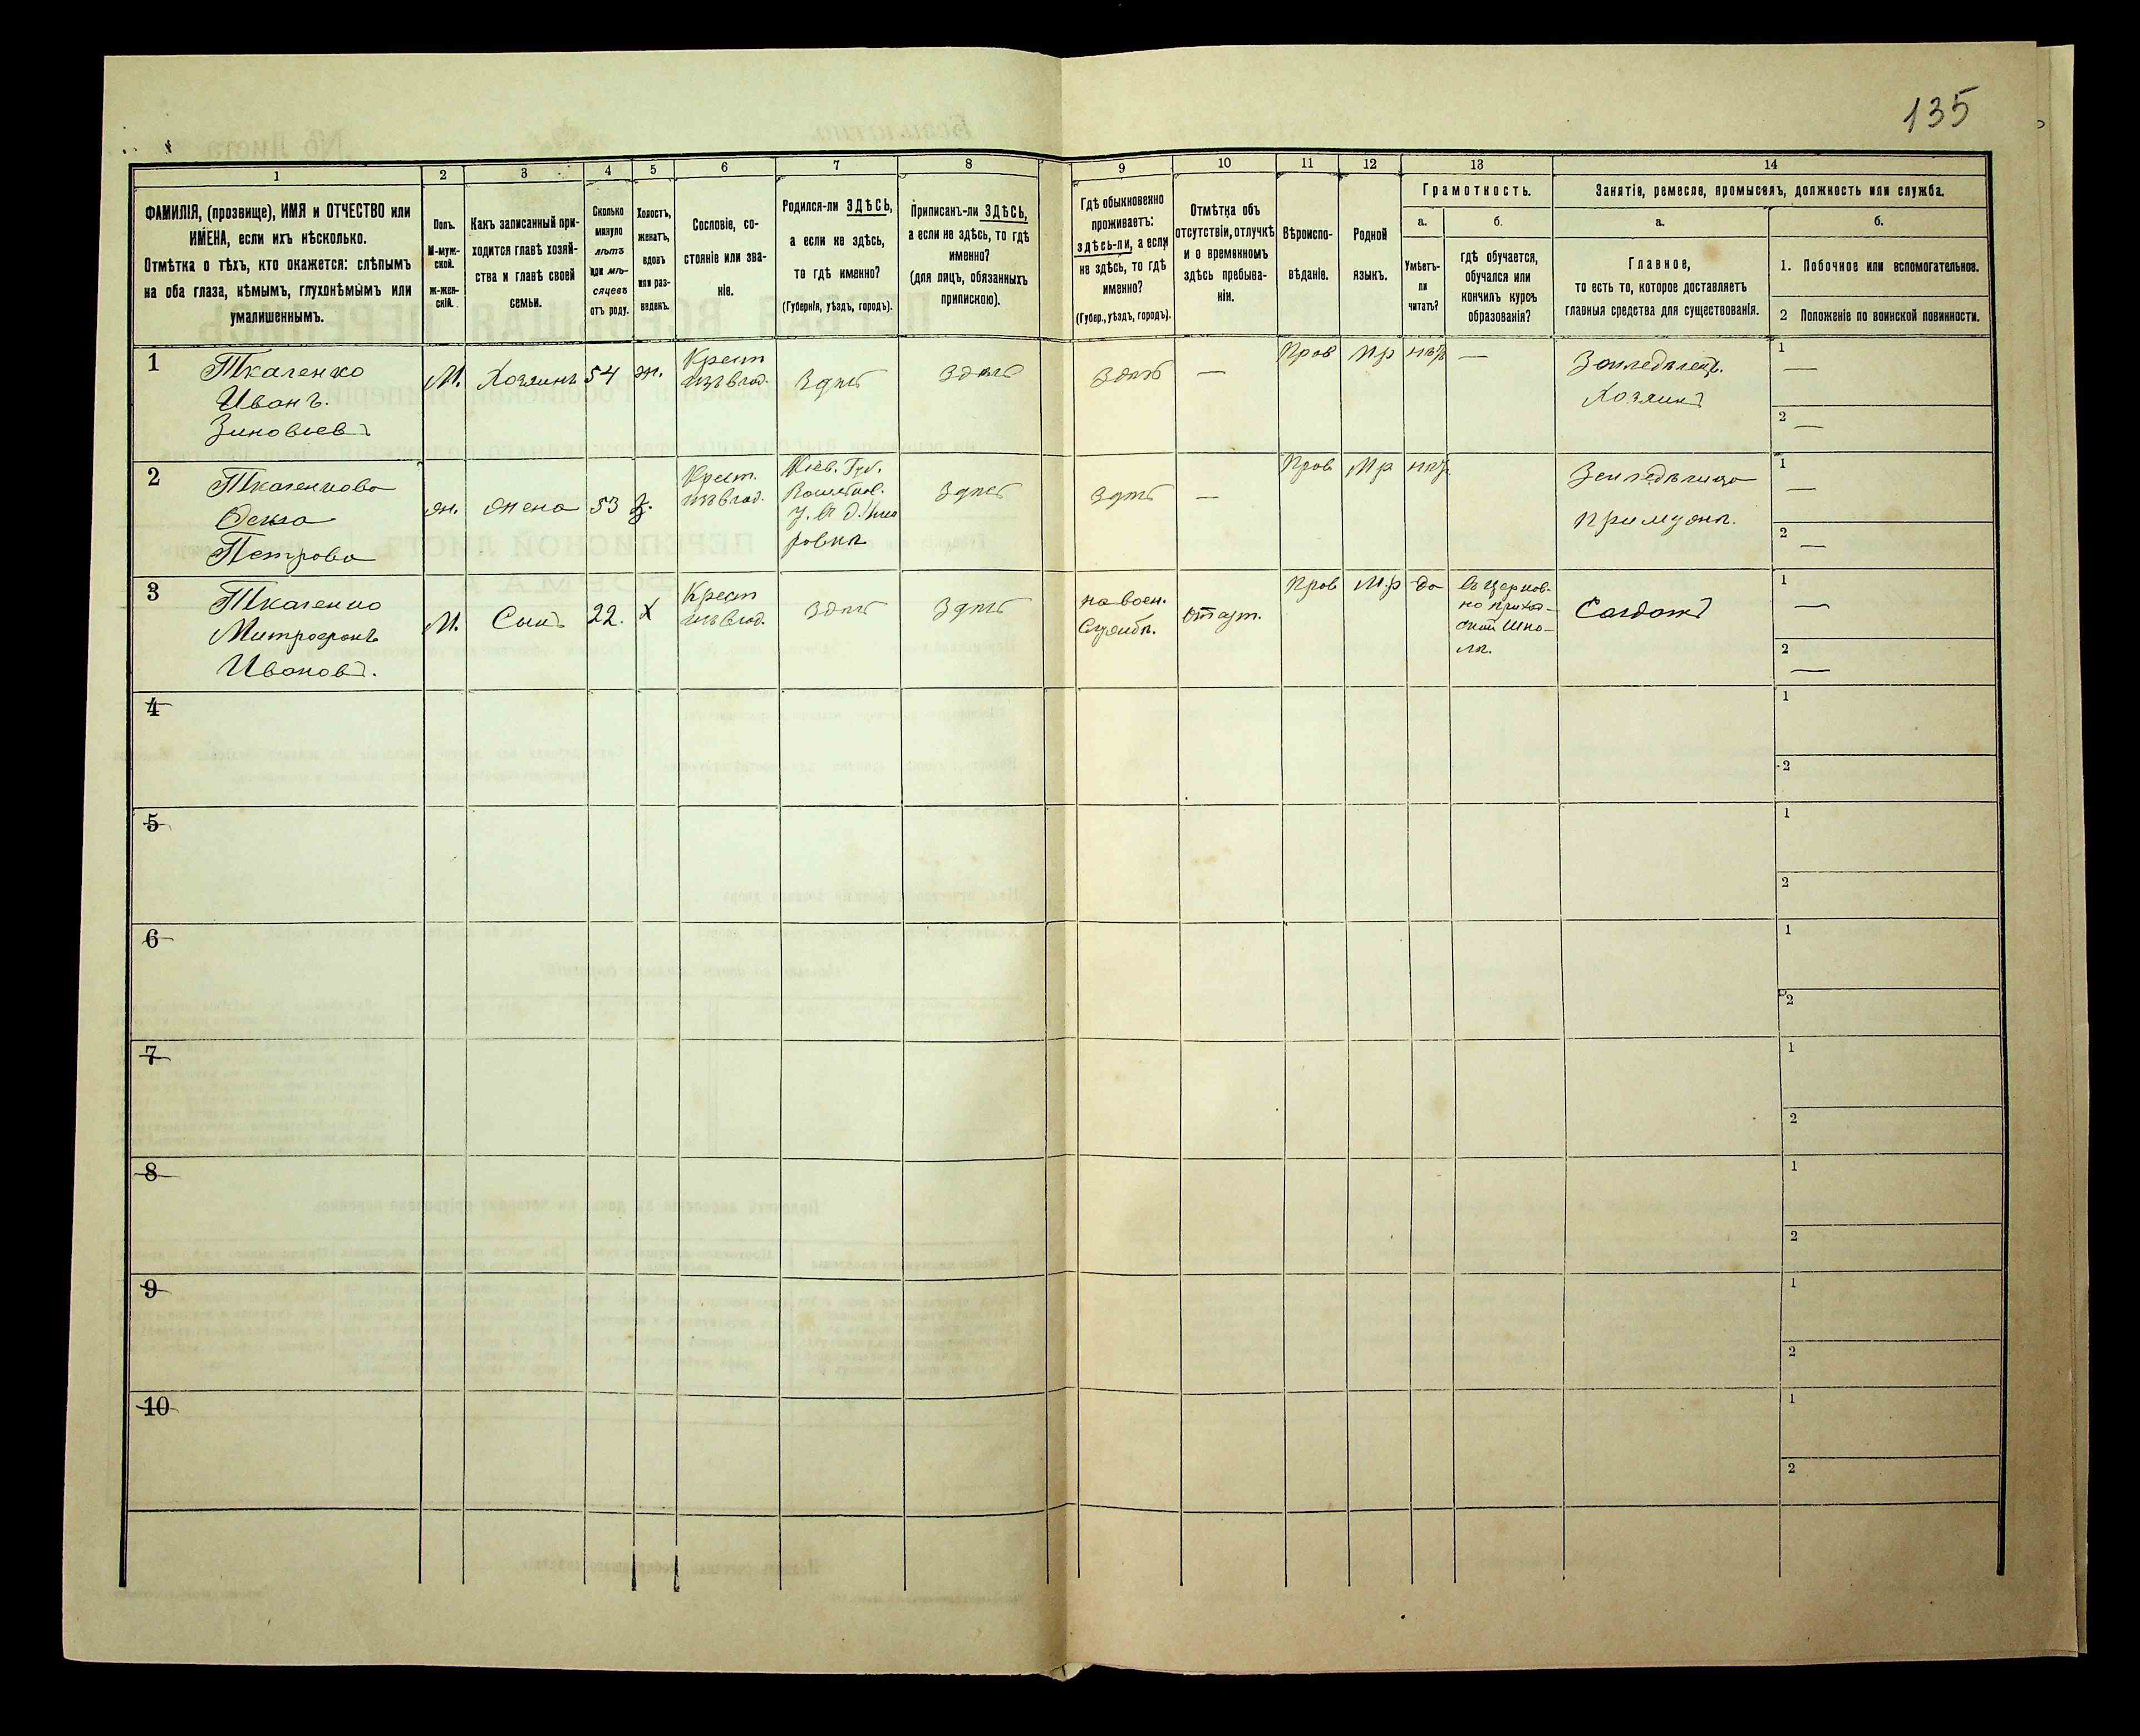 135
1
2
3
4
5
6
7
8
9
10
11
12
13
14
ФАМИЛІЯ, (прозвище), ИМЯ и ОТЧЕСТВО или
ИМЕНА, если ихъ нѣсколько.
Отмѣтка о тѣхъ, кто окажется: слѣпымъ
на оба глаза, нѣмымъ, глухонѣмымъ или
умалишеннымъ.
Полъ.
М-муж-
ской.
ж-жен-
скій.
Какъ записанный при-
ходится главѣ хозяй-
ства и главѣ своей
семьи.
Сколько
минуло
лѣтъ
или мѣ-
сяцевъ
отъ роду.
Холостъ,
женатъ,
вдовъ
или раз-
веденъ.
Сословіе, со-
стояніе или зва-
ніе.
Родился-ли ЗДѢСЬ,
а если не здѣсь,
то гдѣ именно?
(Губернія, уѣздъ, городъ).
Приписанъ-ли ЗДѢСЬ,
а если не здѣсь, то гдѣ
именно?
(для лицъ, обязанныхъ
припискою).
Гдѣ обыкновенно
проживаетъ:
здѣсь-ли, а если
не здѣсь, то гдѣ
именно?
(Губер., уѣздъ, городъ).
Отмѣтка объ
отсутствіи, отлучкѣ
и о временномъ
здѣсь пребыва-
ніи.
Вѣроиспо-
вѣданіе.
Родной
языкъ.
Грамотность.
а.
Умѣетъ-
ли
читать?
б.
гдѣ обучается,
обучался или
кончилъ курсъ
образованія?
Занятіе, ремесло, промыселъ, должность или служба.
а.
Главное,
то есть то, которое доставляетъ
главныя средства для существованія.
б.
1. Побочное или вспомогательное.
2 Положеніе по воинской повинности.
1
Ткаченко
Иванъ.
Зиновьевъ
М.
Хозяинъ
54
ж.
Крест
изъ влад.
Здѣсь
Здѣсь
Здѣсь
—
Прав
Мр
нѣтъ
—
Земледѣлецъ.
Хозяинъ
1
—
2
—
2
Ткаченкова
Петрова
ж.
жена
53
з.
Крест.
изъ влад.
Кіев. Губ.
ровкѣ
Здѣсь
Здѣсь
—
Прав
Мр
нѣт
при мужѣ.
1
—
2
—
3
Ткаченко
Митрофанъ
Ивановъ.
М.
Сынъ
22.
х
Крест
изъ влад.
Здѣсь
Здѣсь
на воен.
Службѣ.
Отсут.
Прав
М.р
да
въ Церков-
но приход-
ской Шко-
лѣ.
Солдатъ
1
—
2
—
4
1
2
5
1
2
6
1
2
7
1
2
8
1
2
9
1
2
10
1
2